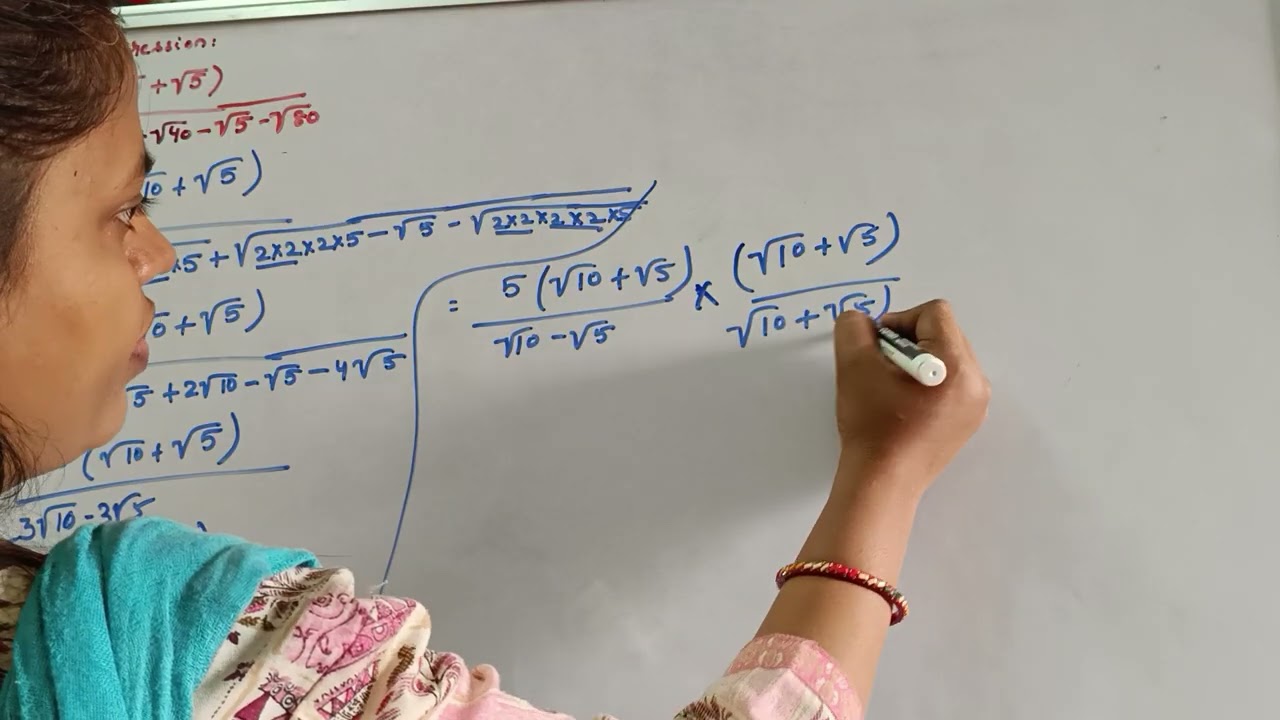 ression:
+√5)
√40-√5-√80
10+√5)
×5+√2×2×2×5-√5-√2×2×2×2×5
+√5)
5+2√10-√5-4√5
(√10+√5)
3√10-3√5
= 5(√10+√5) × (√10+√5)
√10-√5 √10+√5)